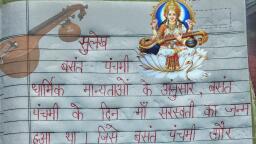 सुलेख
बसंत पंचमी
धार्मिक मान्यताओं के अनुसार, बसंत
पंचमी के दिन माँ सरस्वती का जन्म
हुआ था। जिसे बसंत पंचमी और